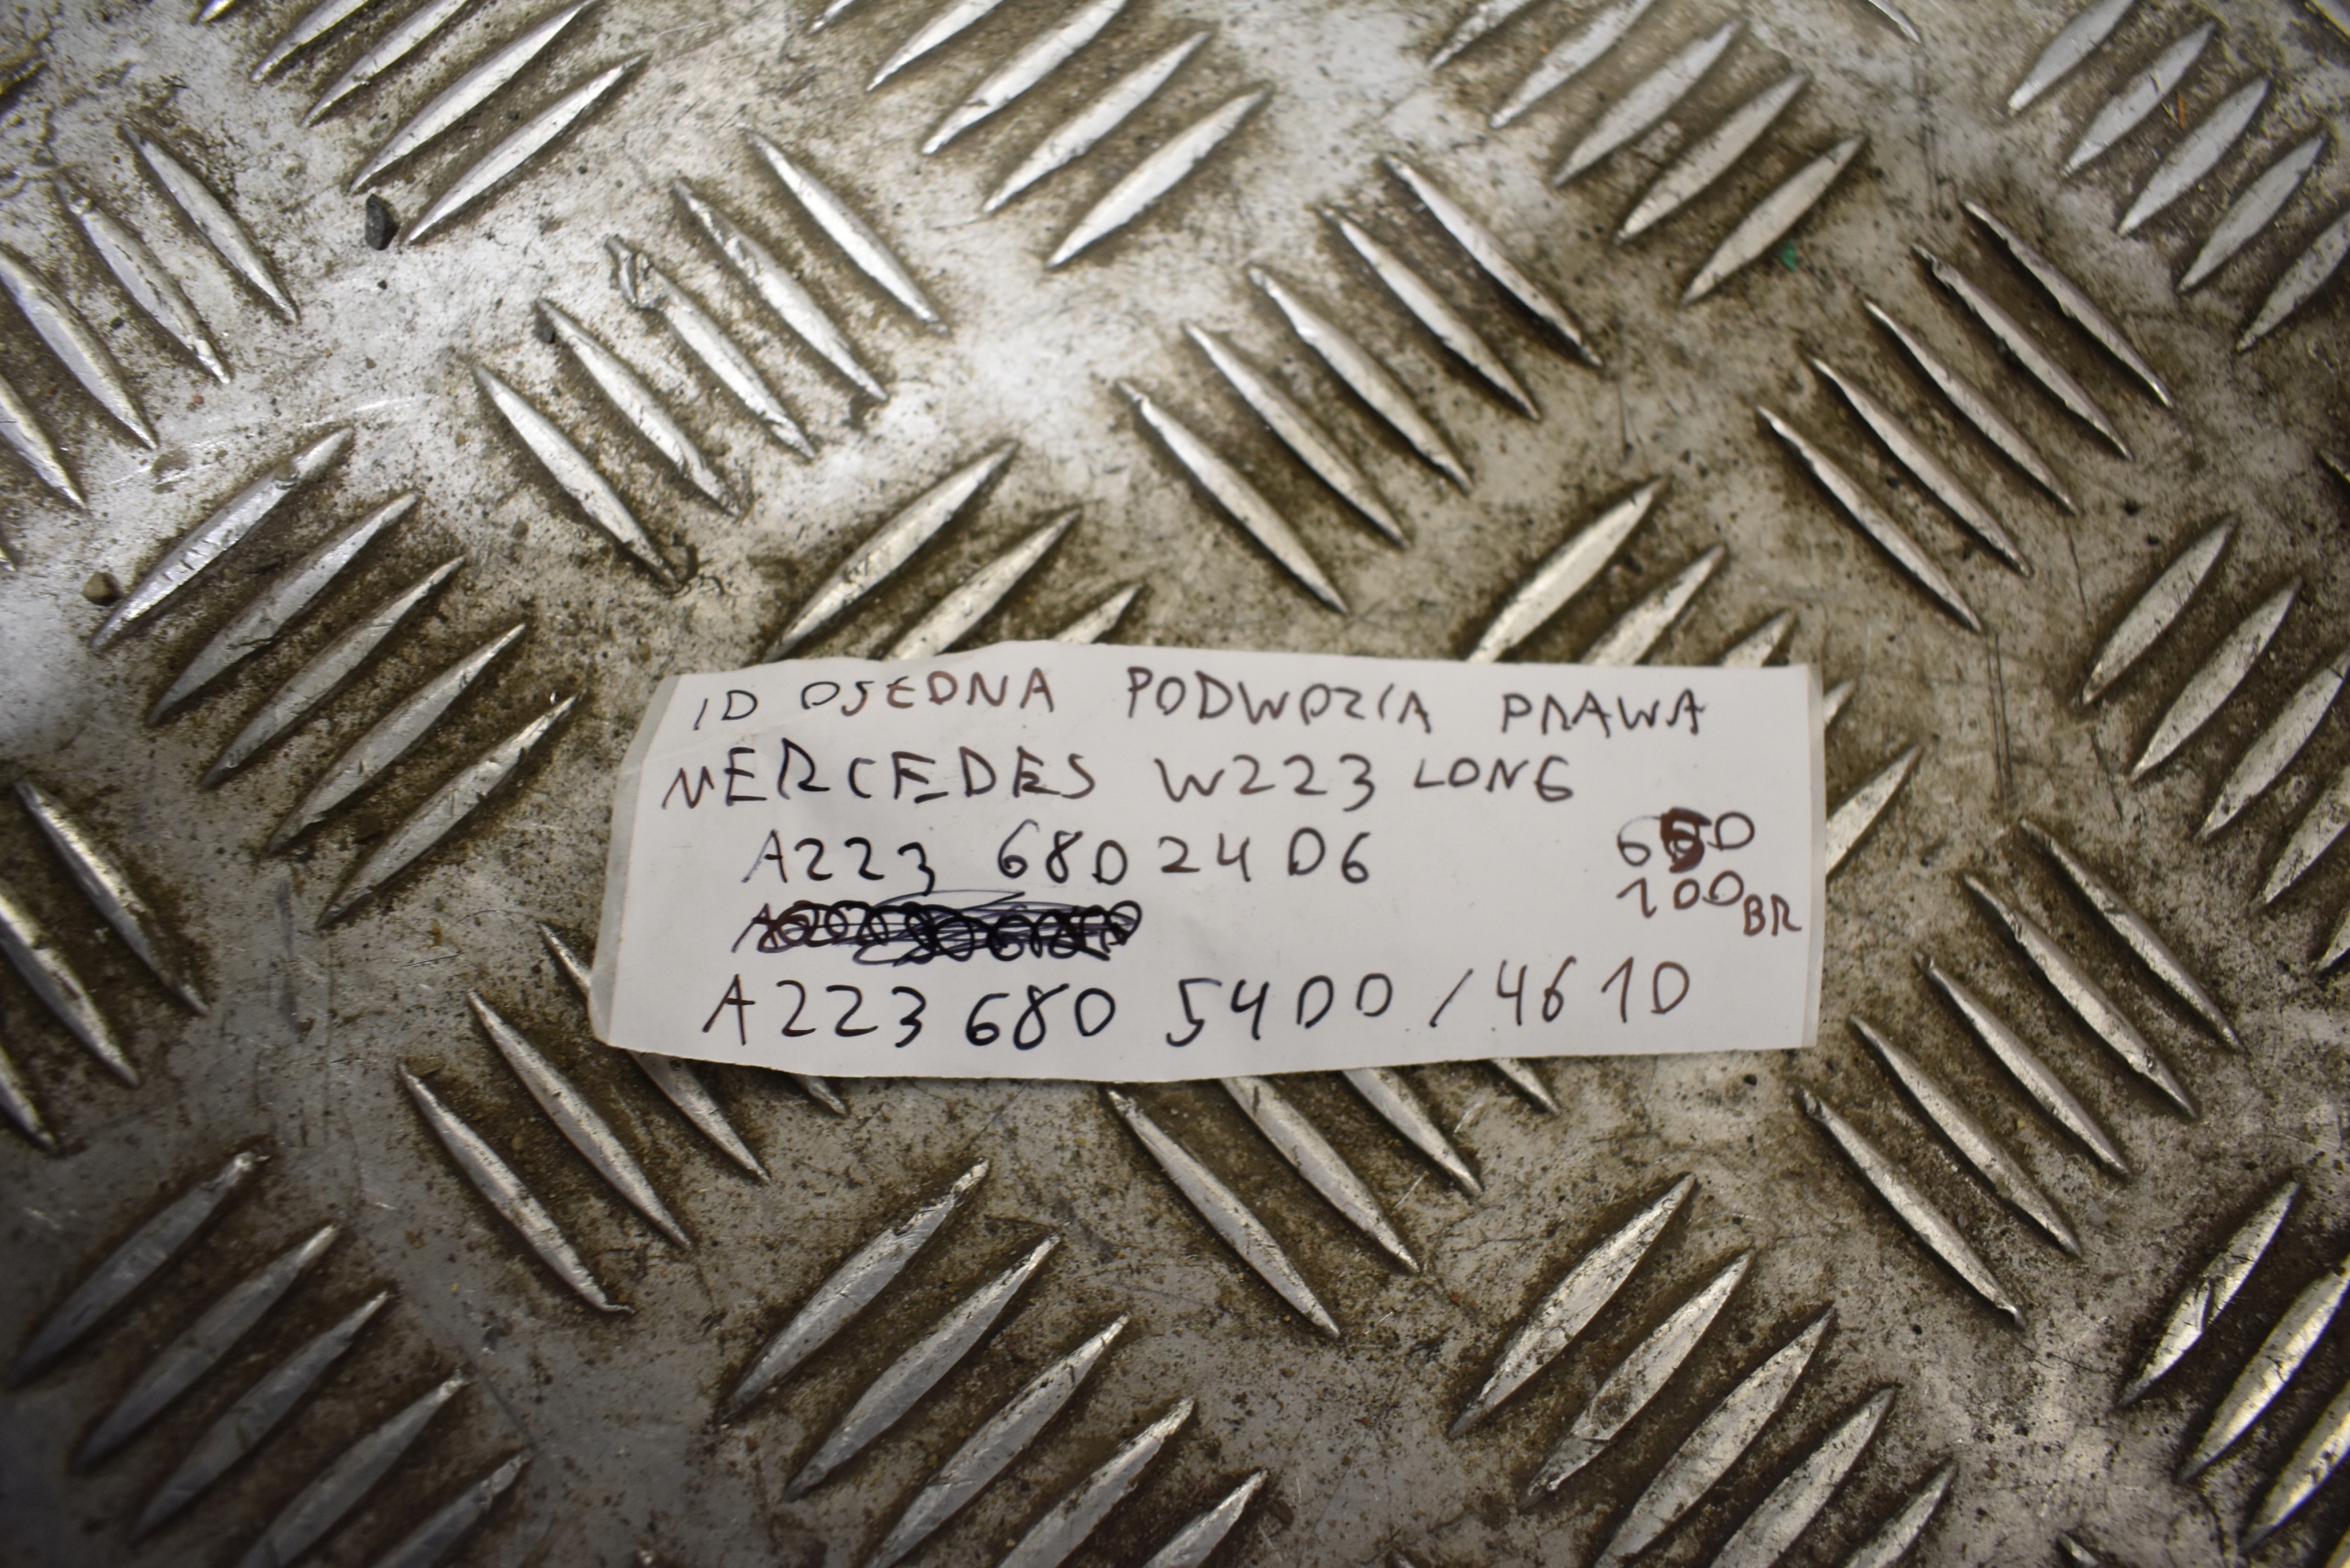 ID OSŁONA PODWOZIA PRAWA
MERCEDES W223 LONG
A223 680 24 06
100 BR
A223 680 5400 / 4610